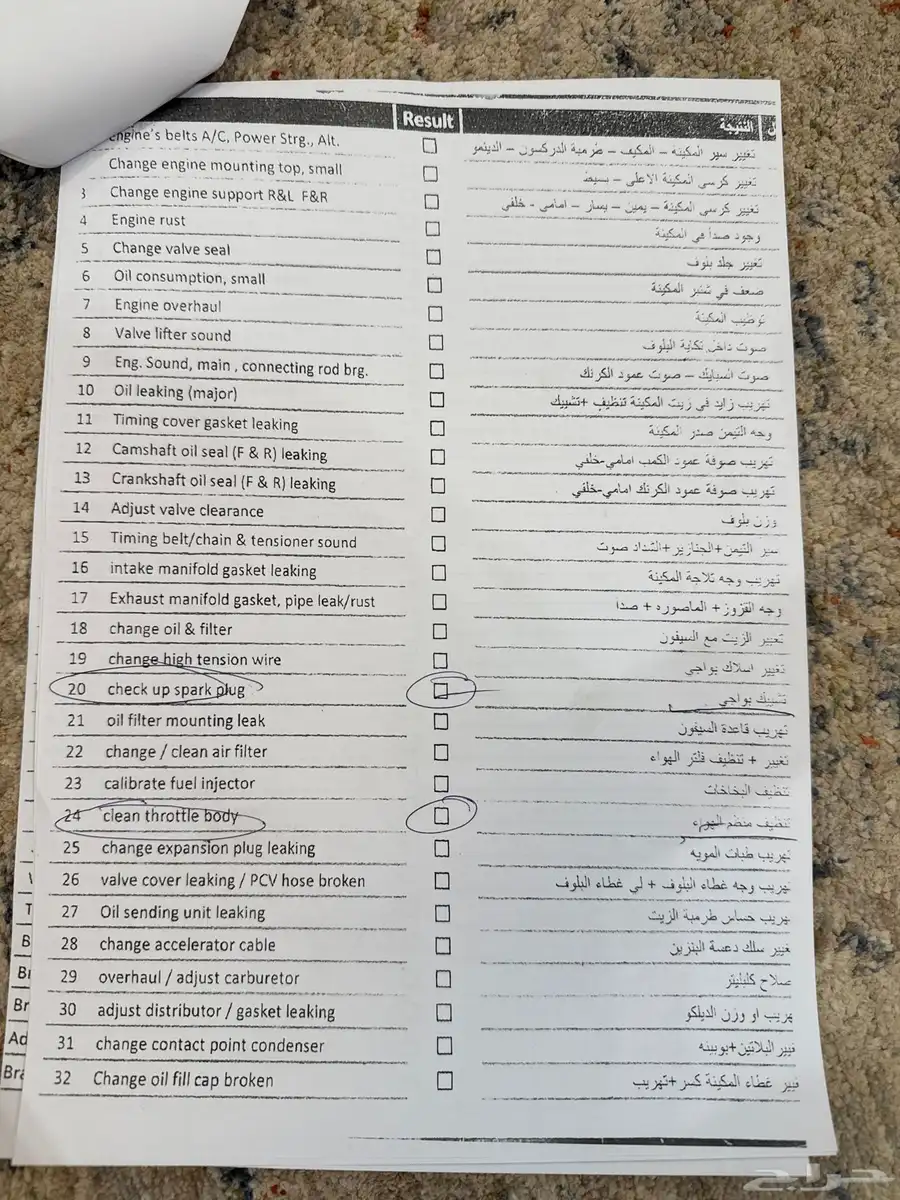 Result النتيجة
engine's belts A/C, Power Strg., Alt. تغيير سير المكينة – المكيف – طرمبة الدركسون – الدينمو
Change engine mounting top, small تغيير كرسي المكينة الاعلى – بسيط
3 Change engine support R&L F&R تغيير كرسي المكينة – يمين – يسار – امامي - خلفي
4 Engine rust وجود صدأ في المكينة
5 Change valve seal تغيير جلد بلوف
6 Oil consumption, small ضعف في شنبر المكينة
7 Engine overhaul توظيب المكينة
8 Valve lifter sound صوت داخل تكاية البلوف
9 Eng. Sound, main , connecting rod brg. صوت السبايك – صوت عمود الكرنك
10 Oil leaking (major) تهريب زايد في زيت المكينة تنظيف +تشييك
11 Timing cover gasket leaking وجه التيمن صدر المكينة
12 Camshaft oil seal (F & R) leaking تهريب صوفة عمود الكمب امامي-خلفي
13 Crankshaft oil seal (F & R) leaking تهريب صوفة عمود الكرنك امامي-خلفي
14 Adjust valve clearance وزن بلوف
15 Timing belt/chain & tensioner sound سير التيمن+الجنازير+الشداد صوت
16 intake manifold gasket leaking تهريب وجه ثلاجة المكينة
17 Exhaust manifold gasket, pipe leak/rust وجه القزوز + الماصوره + صدا
18 change oil & filter تغيير الزيت مع السيفون
19 change high tension wire تغيير اسلاك بواجي
20 check up spark plug تشييك بواجي
21 oil filter mounting leak تهريب قاعدة السيفون
22 change / clean air filter تغيير + تنظيف فلتر الهواء
23 calibrate fuel injector تنظيف البخاخات
24 clean throttle body تنظيف منظم الهواء
25 change expansion plug leaking تهريب طبات المويه
26 valve cover leaking / PCV hose broken تهريب وجه غطاء البلوف + لي غطاء البلوف
27 Oil sending unit leaking تهريب حساس طرمبة الزيت
28 change accelerator cable غيير سلك دعسة البنزين
29 overhaul / adjust carburetor صلاح كلبليتر
30 adjust distributor / gasket leaking هريب او وزن الديلكو
31 change contact point condenser غيير البلاتين+بوبينه
32 Change oil fill cap broken غيير غطاء المكينة كسر+تهريب
حراج